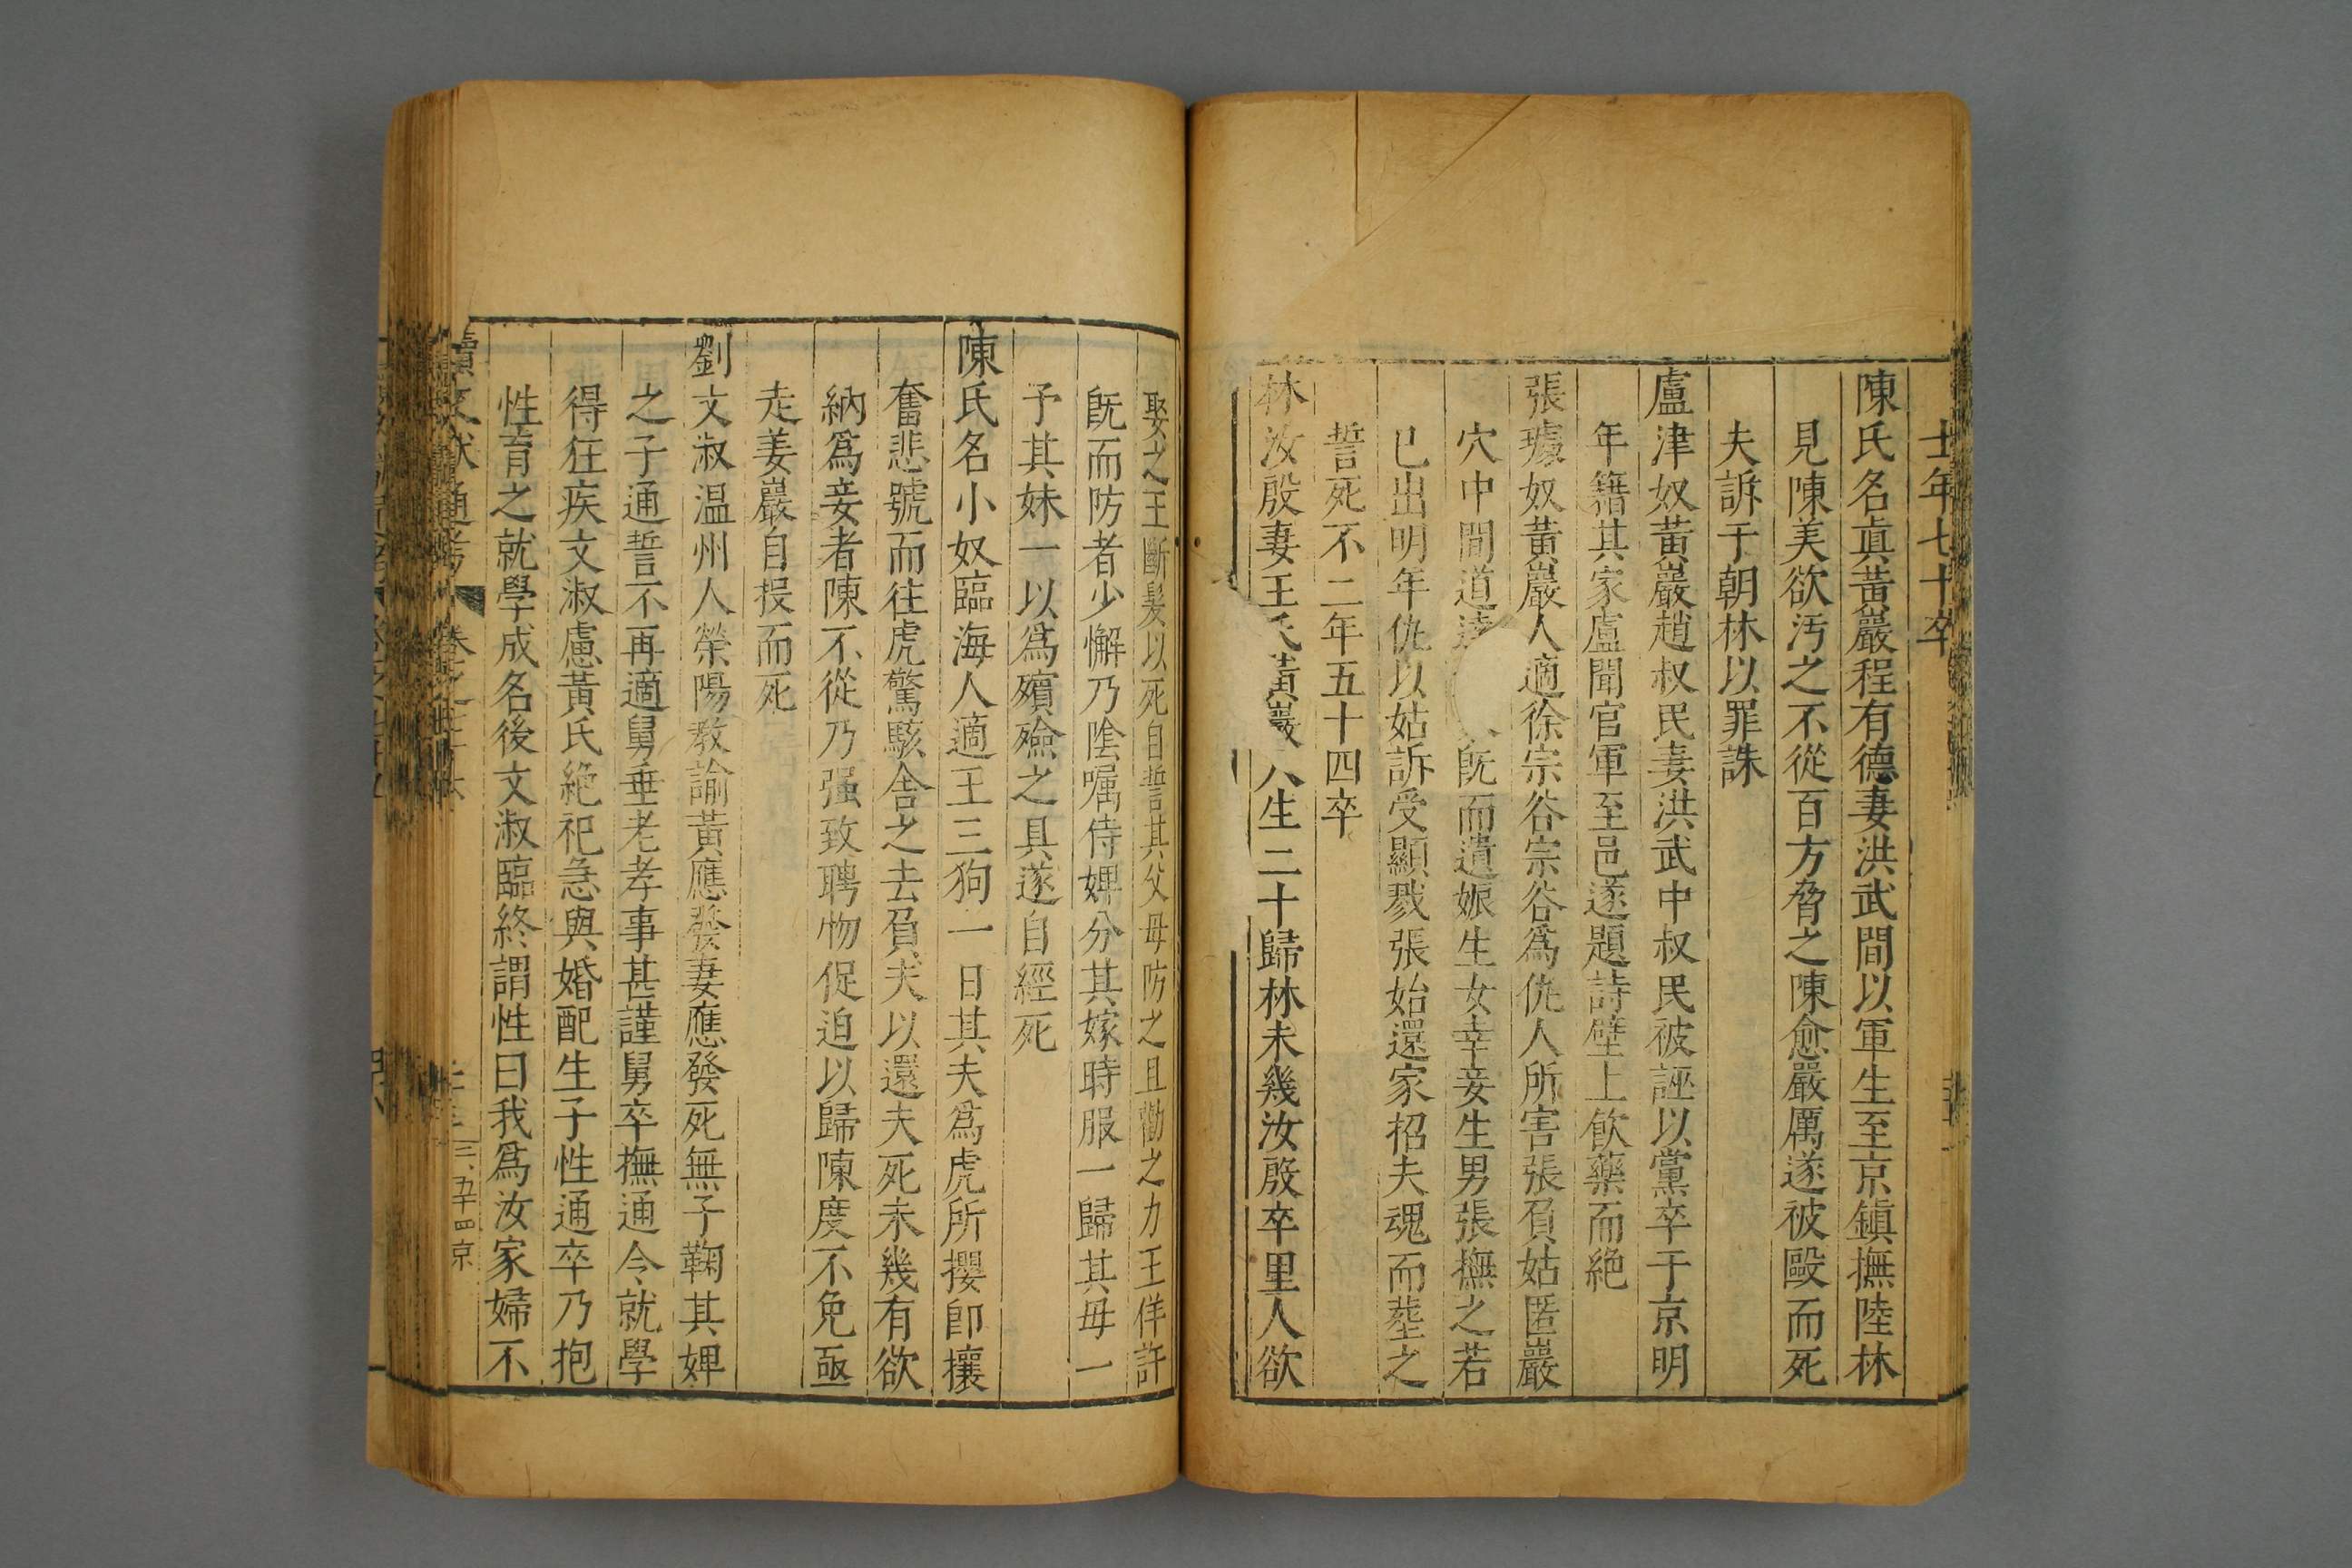 士年七十卒
陳氏名眞黃巖程有德妻洪武間以軍生至京鎮撫陸林
見陳美欲汚之不從百方脅之陳愈嚴厲遂被毆而死
夫訴于朝林以罪誅
盧津奴黃巖趙叔民妻洪武中叔民被誣以黨卒于京明
年籍其家盧聞官軍至邑遂題詩壁上飮藥而絶
張璩奴黃巖人適徐宗谷宗谷爲仇人所害張負姑匿巖
穴中間道逵旣而遺娠生女幸妾生男張撫之若
已出明年仇以姑訴受顯戮張始還家招夫魂而塟之
誓死不二年五十四卒
林汝殷妻王氏黃巖人生二十歸林未幾汝殷卒里人欲
娶之王斷髮以死自誓其父母防之且勸之力王佯許
旣而防者少懈乃陰囑侍婢分其嫁時服一歸其母一
予其妹一以爲殯殮之具遂自經死
陳氏名小奴臨海人適王三狗一日其夫爲虎所攫卽攘
奮悲號而往虎驚駭舍之去負夫以還夫死未幾有欲
納爲妾者陳不從乃强致聘物促迫以歸陳度不免亟
走姜巖自投而死
劉文淑温州人滎陽教諭黃應發妻應發死無子鞠其婢
之子通誓不再適舅垂老孝事甚謹舅卒撫通令就學
得狂疾文淑慮黃氏絶祀急與婚配生子性通卒乃抱
性育之就學成名後文淑臨終謂性曰我爲汝家婦不
續文獻通考 卷之七十六
三五十四 京